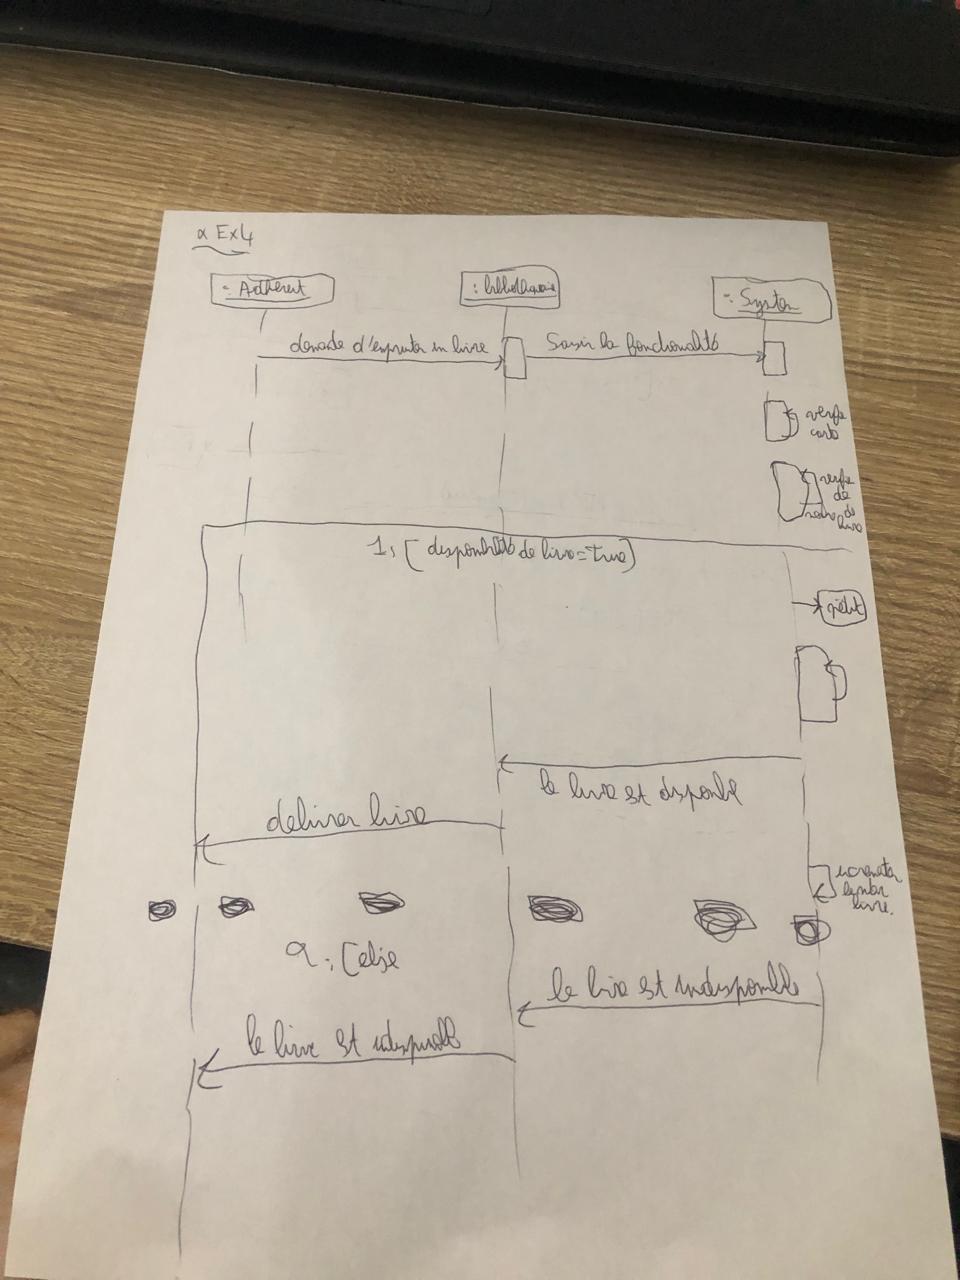 α Ex4
: Adherent
: bibliothequaire
: System
demade d'empruter un livre
Saisir la fonctionalité
verfie
carte
verfie
de
de
livre
1, [disponibilité de livre = true]
prêt
le livre est disponible
delivrer livre
livre.
2, [else
le livre est indisponible
le livre est indisponible